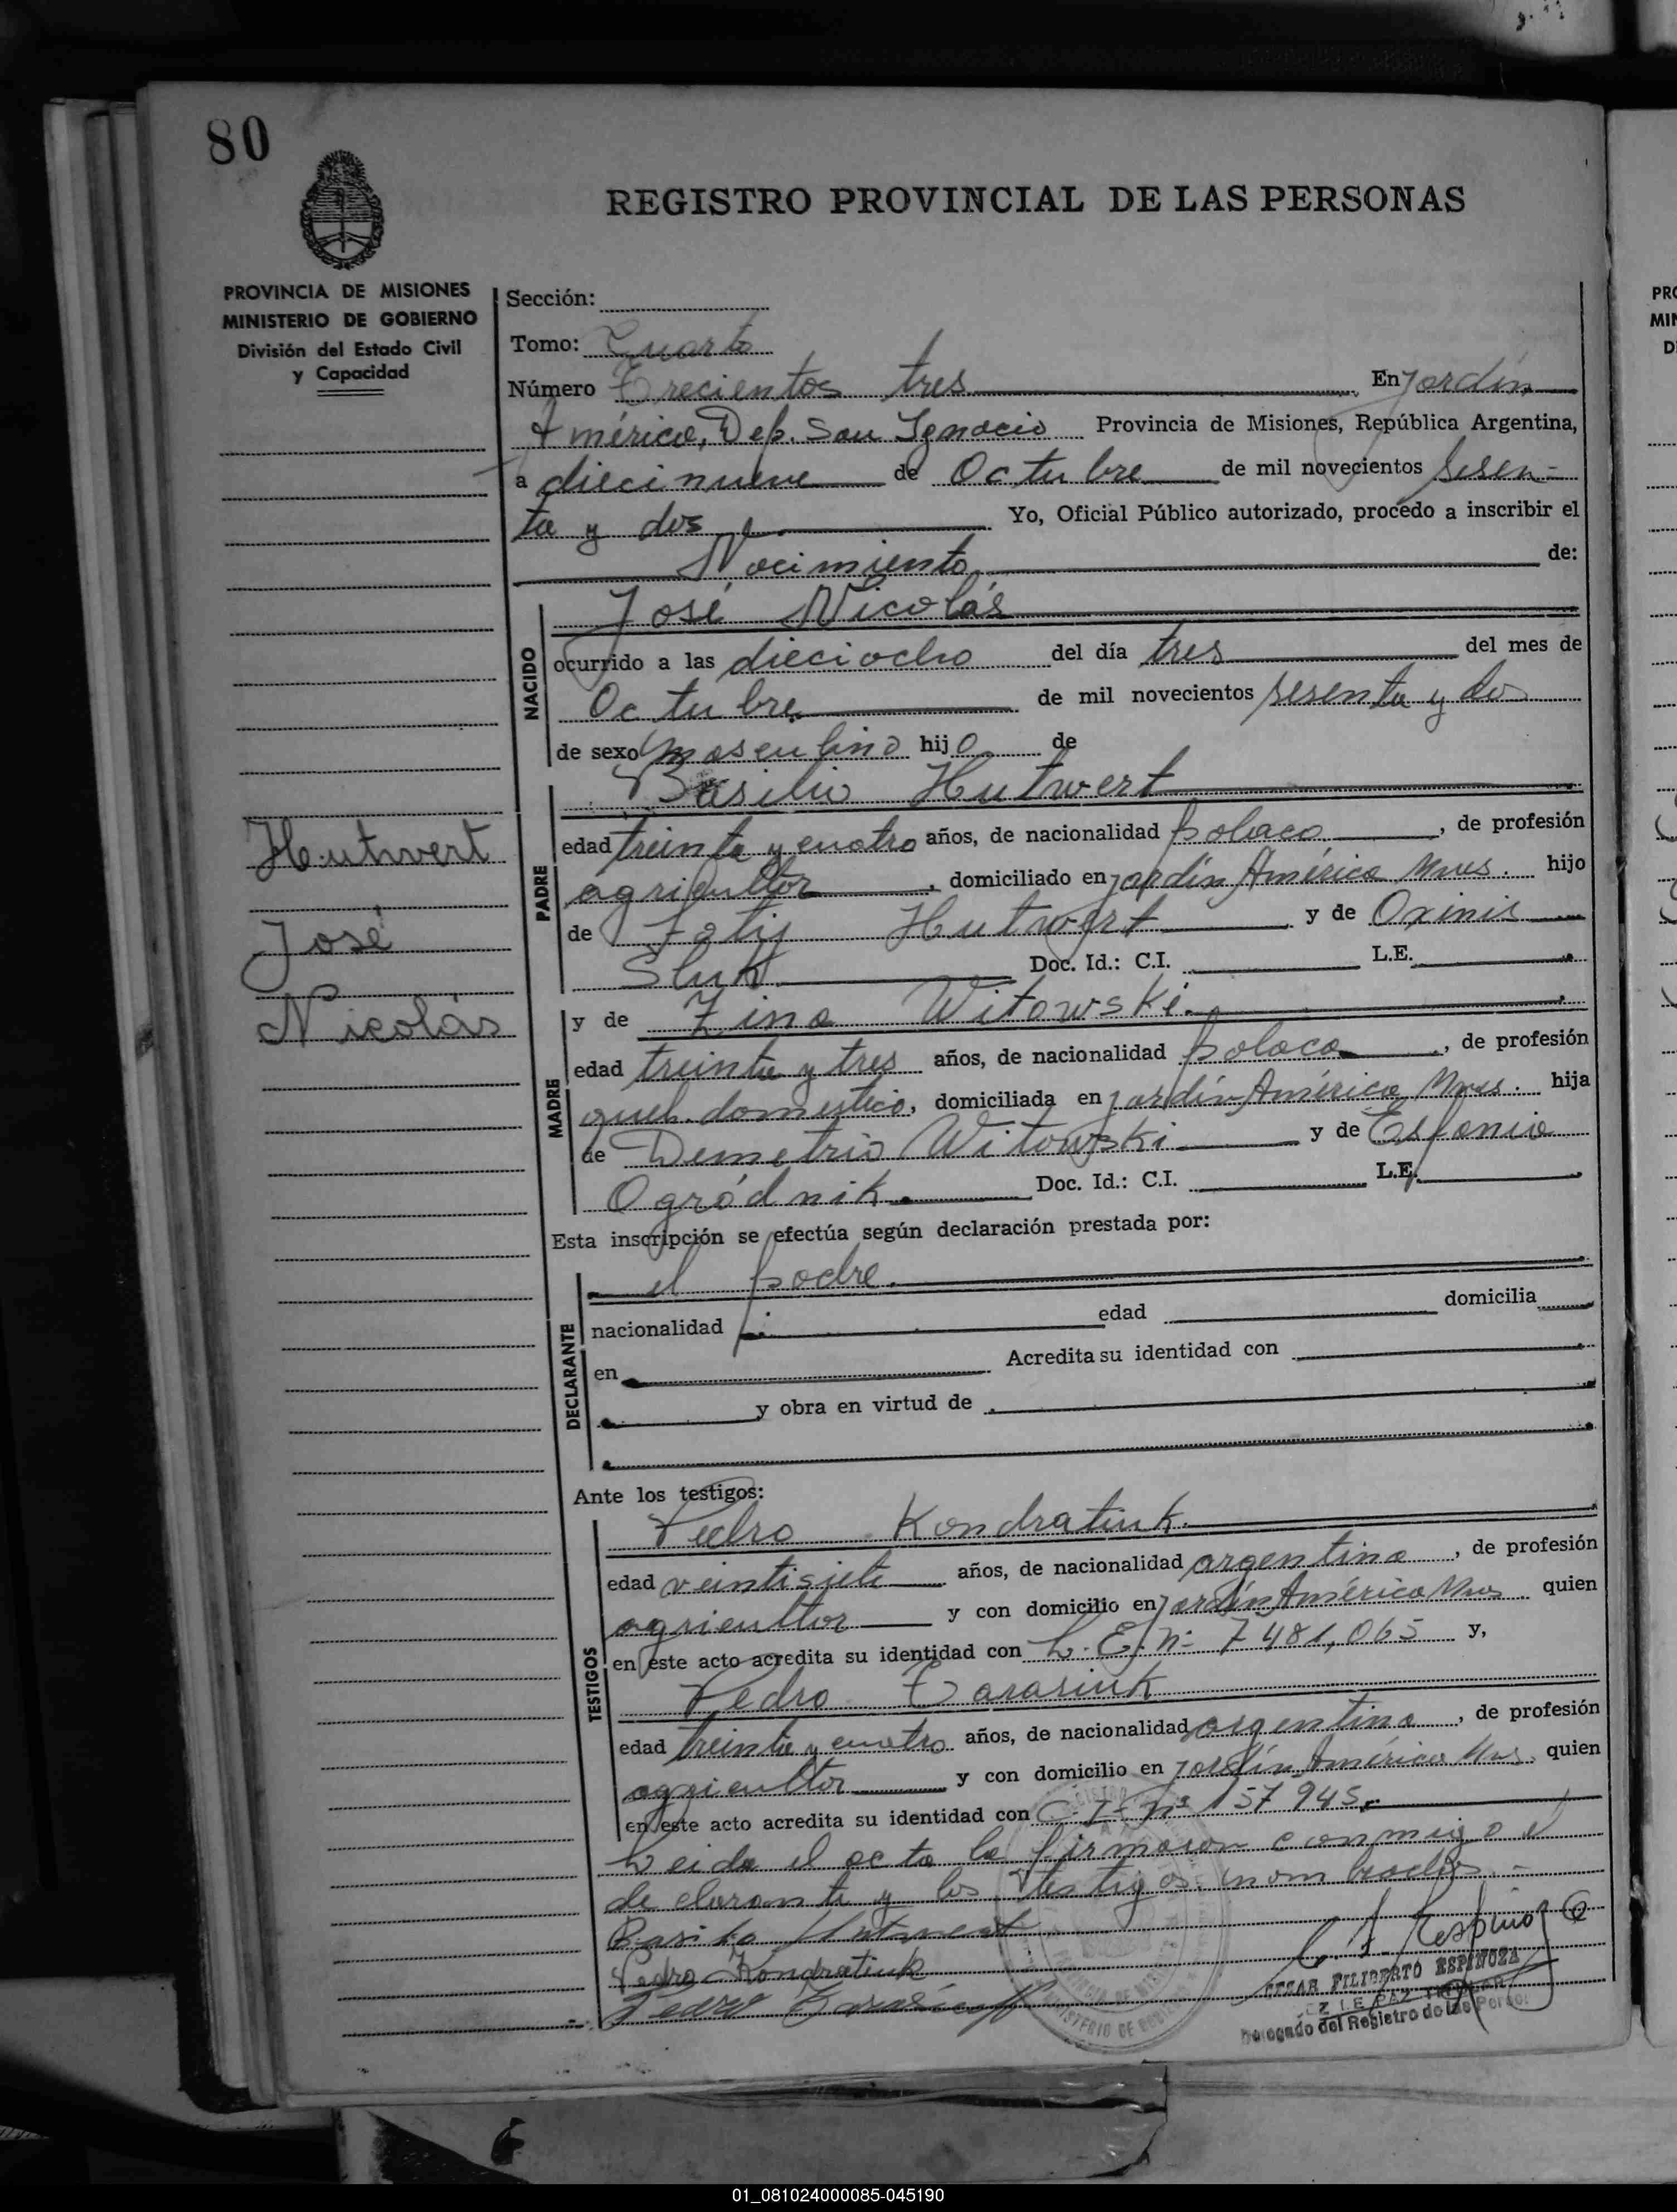 80
REGISTRO PROVINCIAL DE LAS PERSONAS
PROVINCIA DE MISIONES
MINISTERIO DE GOBIERNO
División del Estado Civil
y Capacidad
Sección:
Tomo: Cuarto
Número Trecientos tres En Jardín
América, Dep. San Ignacio Provincia de Misiones, República Argentina,
a diecinueve de Octubre de mil novecientos sesen-
ta y dos Yo, Oficial Público autorizado, procedo a inscribir el
Nacimiento de:
NACIDO
José Nicolás
ocurrido a las dieciocho del día tres del mes de
Octubre de mil novecientos sesenta y dos
de sexo masculino hijo de
PADRE
Basilio Hutwert
edad treinta y cuatro años, de nacionalidad polaca, de profesión
agricultor, domiciliado en Jardín América Mnes. hijo
de Fotij Hutwert y de Oxinis
Sluk Doc. Id.: C.I. L.E.
Hutwert
José
Nicolás
MADRE
y de Zina Witowski
edad treinta y tres años, de nacionalidad polaca, de profesión
queh. domestico, domiciliada en Jardín América Mnes. hija
de Demetrio Witowski y de Esfania
Ogródnik. Doc. Id.: C.I. L.E.
Esta inscripción se efectúa según declaración prestada por:
DECLARANTE
el padre.
nacionalidad edad domicilia
en Acredita su identidad con
y obra en virtud de
Ante los testigos:
TESTIGOS
Pedro Kondratiuk
edad veintisiete años, de nacionalidad argentina, de profesión
agricultor y con domicilio en Jardín América Mnes. quien
en este acto acredita su identidad con L. E. nº 7481,065 y,
Pedro Tarasiuk
edad treinta y cuatro años, de nacionalidad argentina, de profesión
agricultor y con domicilio en Jardín América Mns. quien
en este acto acredita su identidad con C. I. nº 157945.
Leida el acta la firmaron conmigo el
declarante y los testigos nombrados.-
Basilo Hutwert
Pedro Kondratiuk
Pedro
C. F. Espinoza
CESAR FILIBERTO ESPINOZA
JUEZ DE PAZ TITULAR
Delegado del Registro de las Personas
PRO
MIN
D
01_081024000085-045190